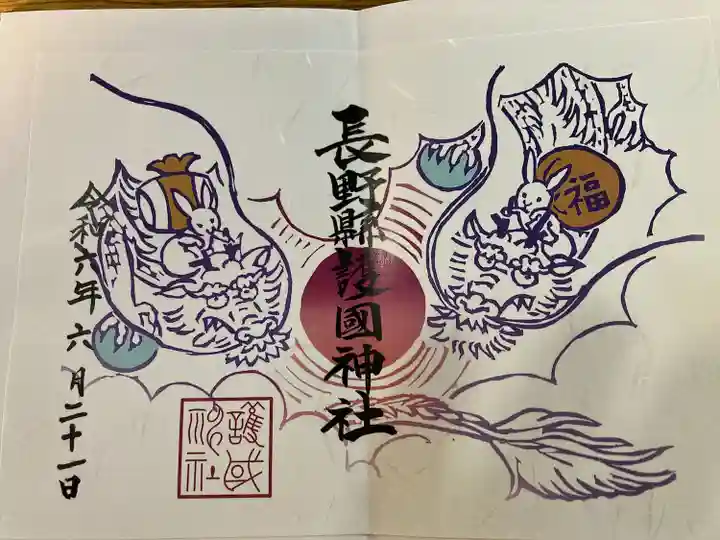 福
長野縣護國神社
令和六年六月二十一日
護国神社